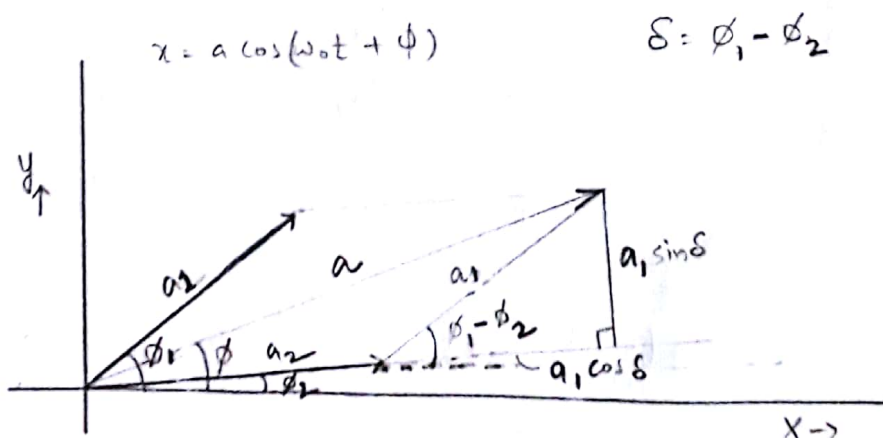 x = a cos(ω₀t + ϕ)
δ = ϕ₁ - ϕ₂
y ↑
a1
a
a1
a₁ sinδ
ϕ1
ϕ
a₂
ϕ₂
ϕ₁-ϕ₂
a₁ cosδ
X→